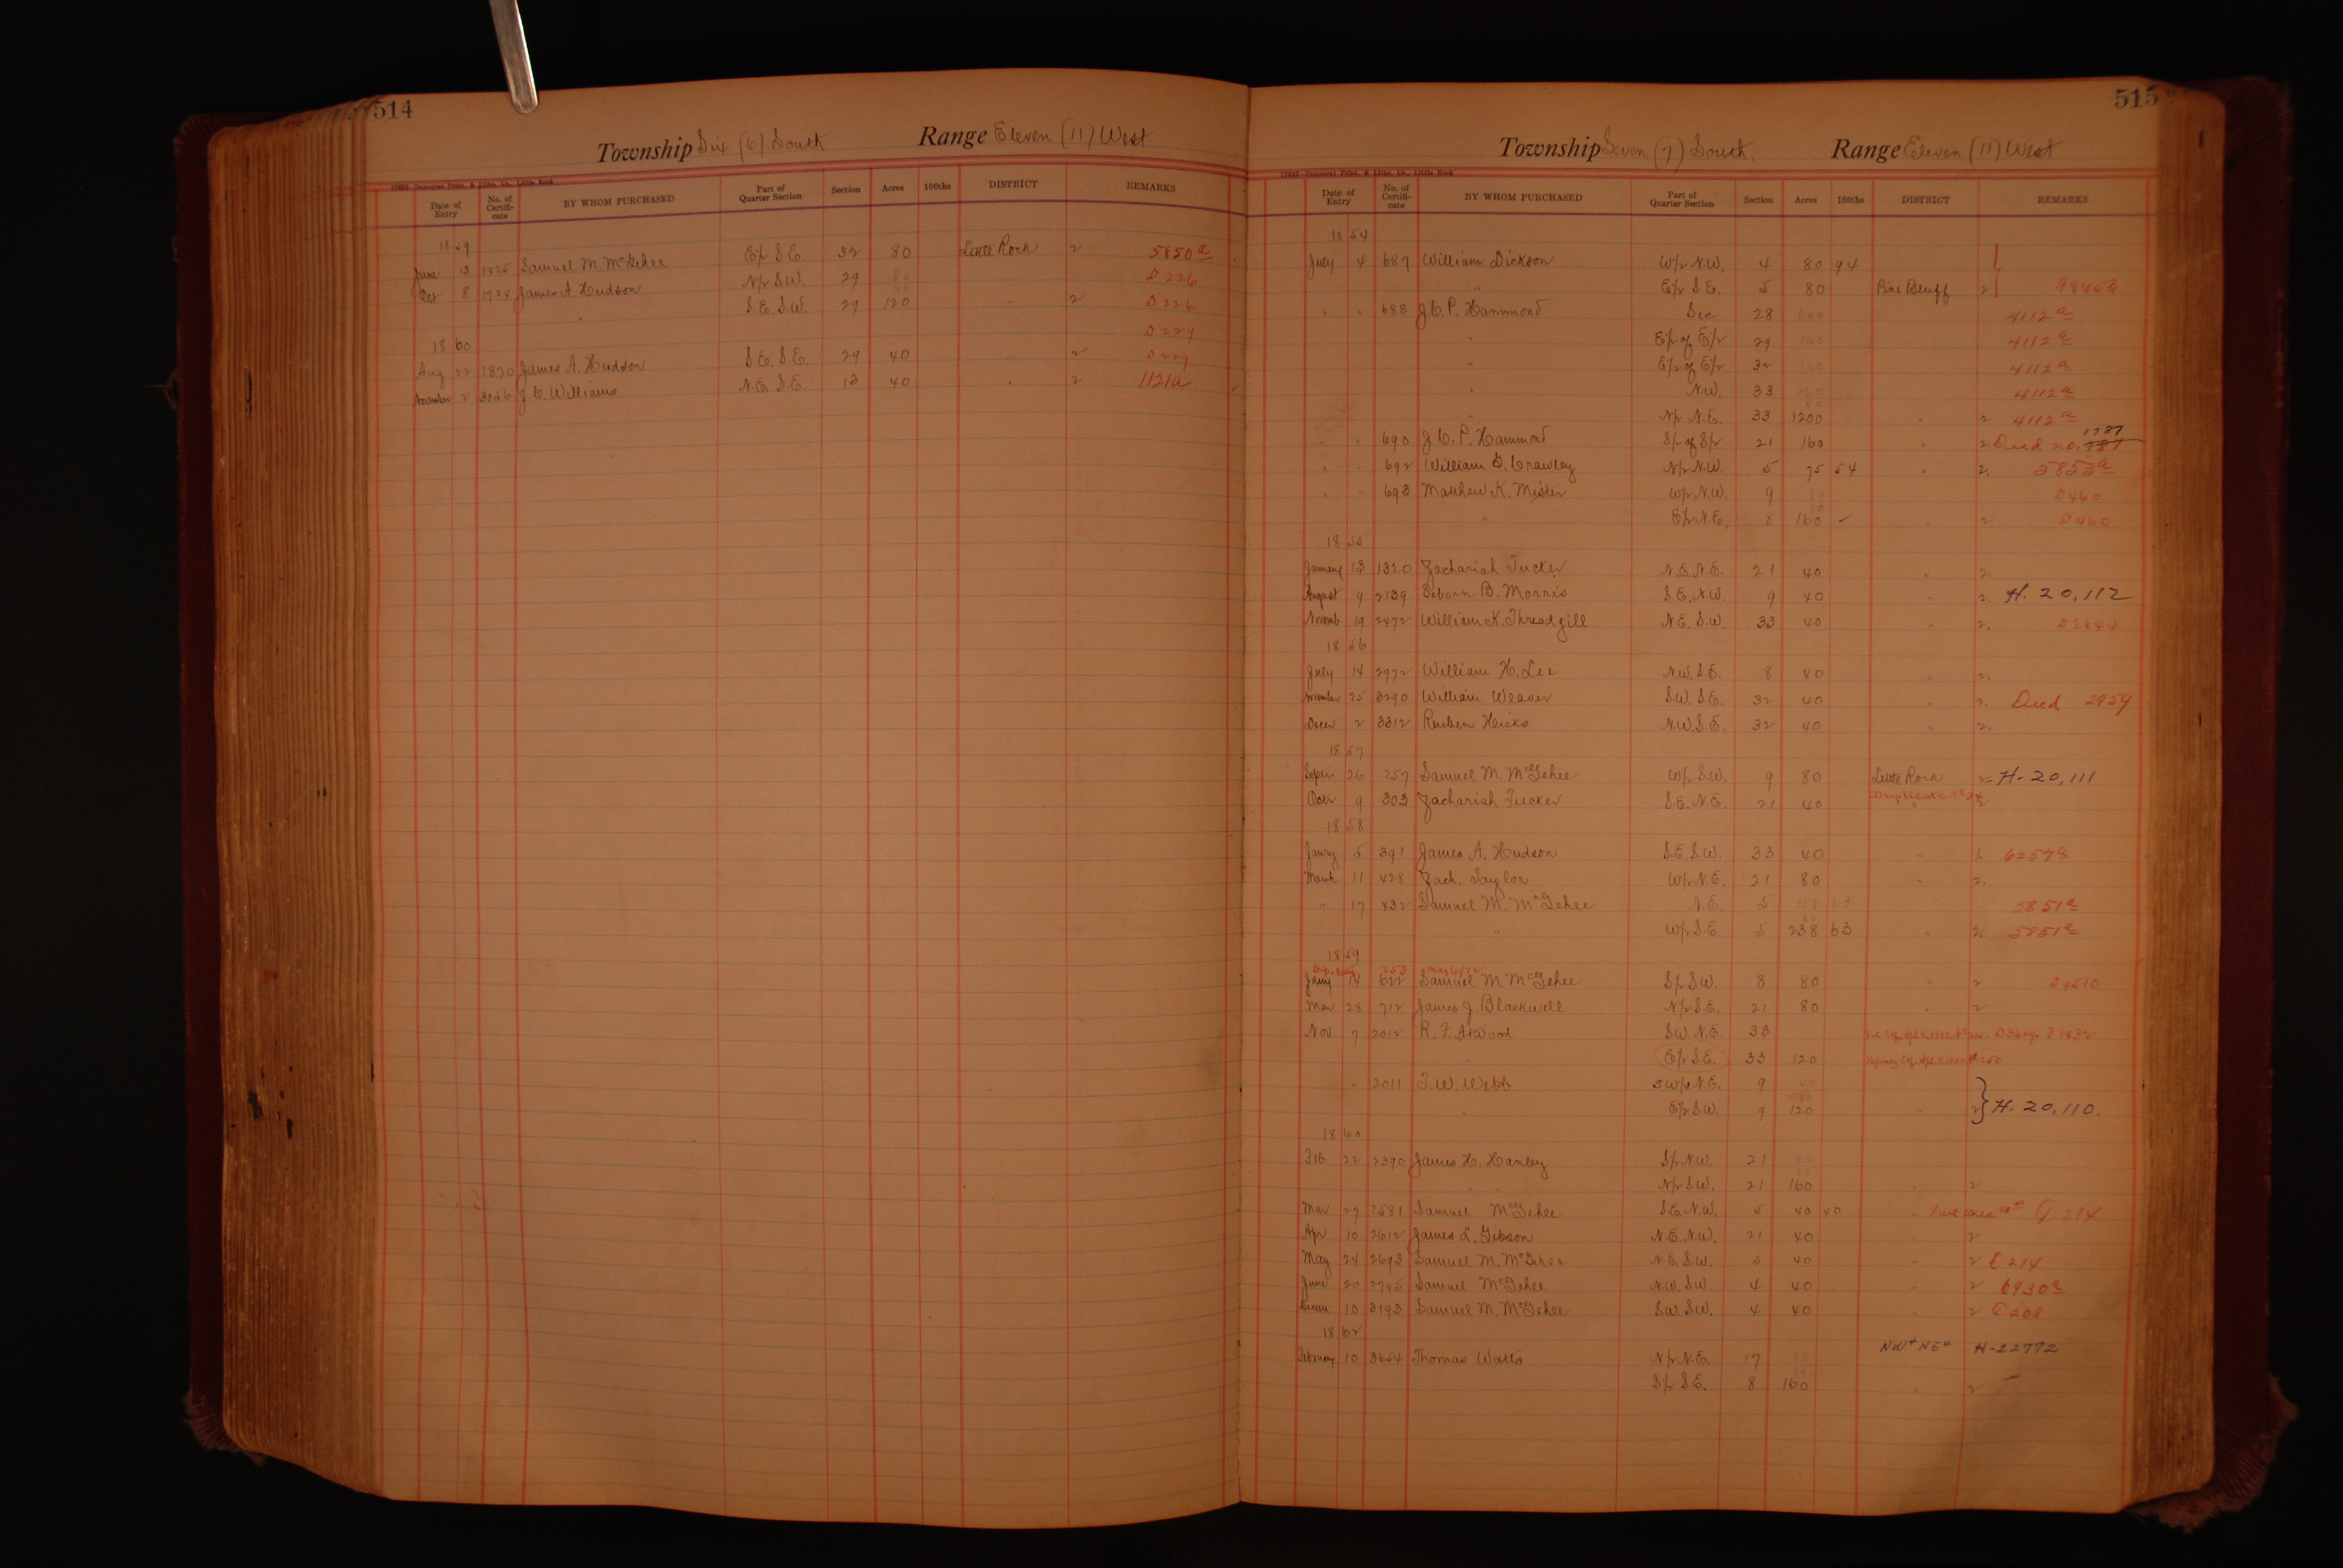 514
Township Six (6) South Range Eleven (11) West
Date of Entry No. of Certifi-cate BY WHOM PURCHASED Part of Quarter Section Section Acres 100ths DISTRICT REMARKS
1859
June 13 1425 Samuel M. McGehee E/2 S.E. 32 80 Little Rock 2 5850a
Oct 8 1924 James A. Hudson N/2 S.W. 29 80 D226
" S.E. S.W. 29 120 " 2 D226
1860 D229
Aug 22 2870 James A. Hudson S.E. S.E. 29 40 " 2 D229
November 2 3056 J.C. Williams N.E. S.E. 13 40 " 2 1121a
515
Township Seven (7) South. Range Eleven (11) West
17693 Democrat Print. & Litho. Co., Little Rock
Date of Entry No. of Certifi-cate BY WHOM PURCHASED Part of Quarter Section Section Acres 100ths DISTRICT REMARKS
1854
July 4 687 William Dickson W/2 N.W. 4 80 94
" E/2 S.E. 5 80 Pine Bluff 2
" " 688 J.C.P. Hammond Sec 28 640 4112a
" E/2 of E/2 29 160 4112a
" E/2 of E/2 32 160 4112a
" N.W. 33 160 4112a
" N/2 N.E. 33 1200 " 2 4112a
" 690 J.C.P. Hammond S/2 of S/2 21 160 " 2 Deed no. 1787
" " 692 William D. Crawley N/2 N.W. 5 75 54 " 2. 5853a
" " 693 Matthew K. Mister W/2 N.W. 9 80 D460
" E/2 N.E. 8 160 " 2 D460
1855
January 13 1320 Zachariah Tucker N.E. N.E. 21 40 " 2.
August 9 2139 Seborn B. Morris S.E. N.W. 9 40 " 2. H. 20,112
Novemb 19 2472 William K. Threadgill N.E. S.W. 33 40 " 2. D2644
1856
July 14 2972 William H. Lee N.W. S.E. 8 40 " 2.
November 25 3290 William Weaver S.W. S.E. 32 40 " 2. Deed 2959
Decer 2 3312 Reuben Hicks N.W. S.E. 32 40 " 2.
1857
Septr 26 257 Samuel M. McGehee W/2 S.W. 9 80 Little Rock 2 H. 20,111
Octr 9 303 Zachariah Tucker S.E. N.E. 21 40 Duplicate
1858
Janry 5 391 James A. Hudson S.E. S.W. 33 40 " 1. 6257a
March 11 428 Zach. Taylor W/2 N.E. 21 80 " 2.
" 17 432 Samuel M. McGehee N.E. 5 158 63 5851a
" W/2 S.E. 5 238 63 " 2. 5851a
1859
253 May 6/72
Janry 14 622 Samuel M. McGehee S/2 S.W. 8 80 " 2 D4510
Mar 28 712 James J. Blackwell N/2 S.E. 21 80 " 2
Nov 7 2012 R. F. Atwood S.W. N.E. 33 D3629.
" E/2 S.E. 33 120
" 2011 T.W. Webb S W/4 N.E. 9 40
" E/2 S.W. 9 120 " 2 } H. 20,110.
1860
Feb 22 2390 James H. Hanley S/2 N.W. 21 80
" N/2 S.W. 21 160 " 2
Mar 27 2581 Samuel McGehee S.E. N.W. 5 40 40 "
Apr 10 2612 James L. Gibson N.E. N.W. 21 40 " 2
May 24 2693 Samuel M. McGehee N.E. S.W. 5 40 " 2 C214
June 20 2745 Samuel McGehee N.W. S.W. 4 40 " 2 6930a
Decem 10 3193 Samuel M. McGehee S.W. S.W. 4 40 " 2 C208
1862
February 10 3654 Thomas Watts N/2 N.E. 17 80 NW + NE H-22772
S/2 S.E. 8 160 " 2